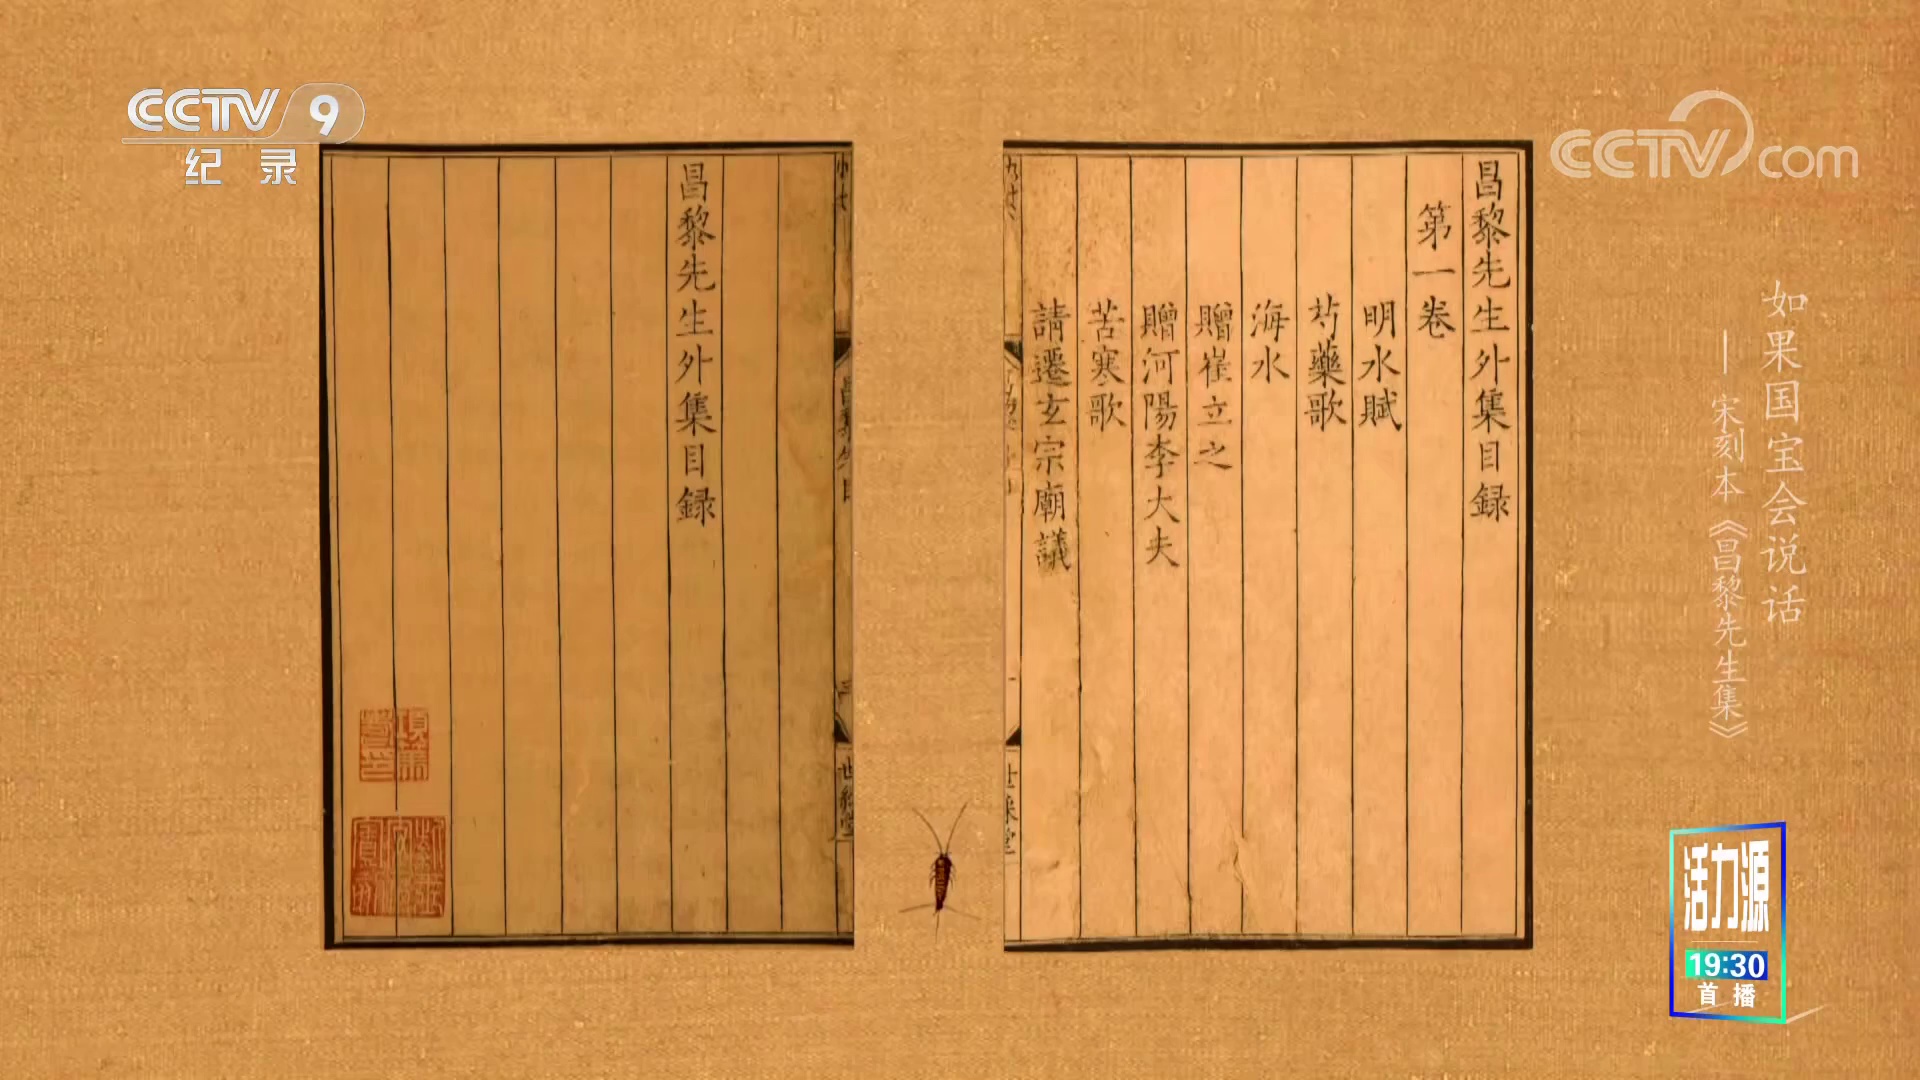 CCTV 9
纪录
CCTV.com
如果国宝会说话
—宋刻本《昌黎先生集》
昌黎先生外集目録
第一卷
明水賦
芍藥歌
海水
贈崔立之
贈河陽李大夫
苦寒歌
請遷玄宗廟議
昌黎先生外集目録
活力源
19:30
首播